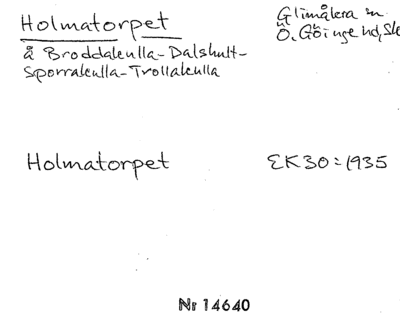 Holmatorpet
Glimåkra sn
Ö. Göinge hd, Sk
å Broddakulla-Dalshult-
Sporrakulla-Trollakulla
Holmatorpet
EK30=1935
Nr 14640